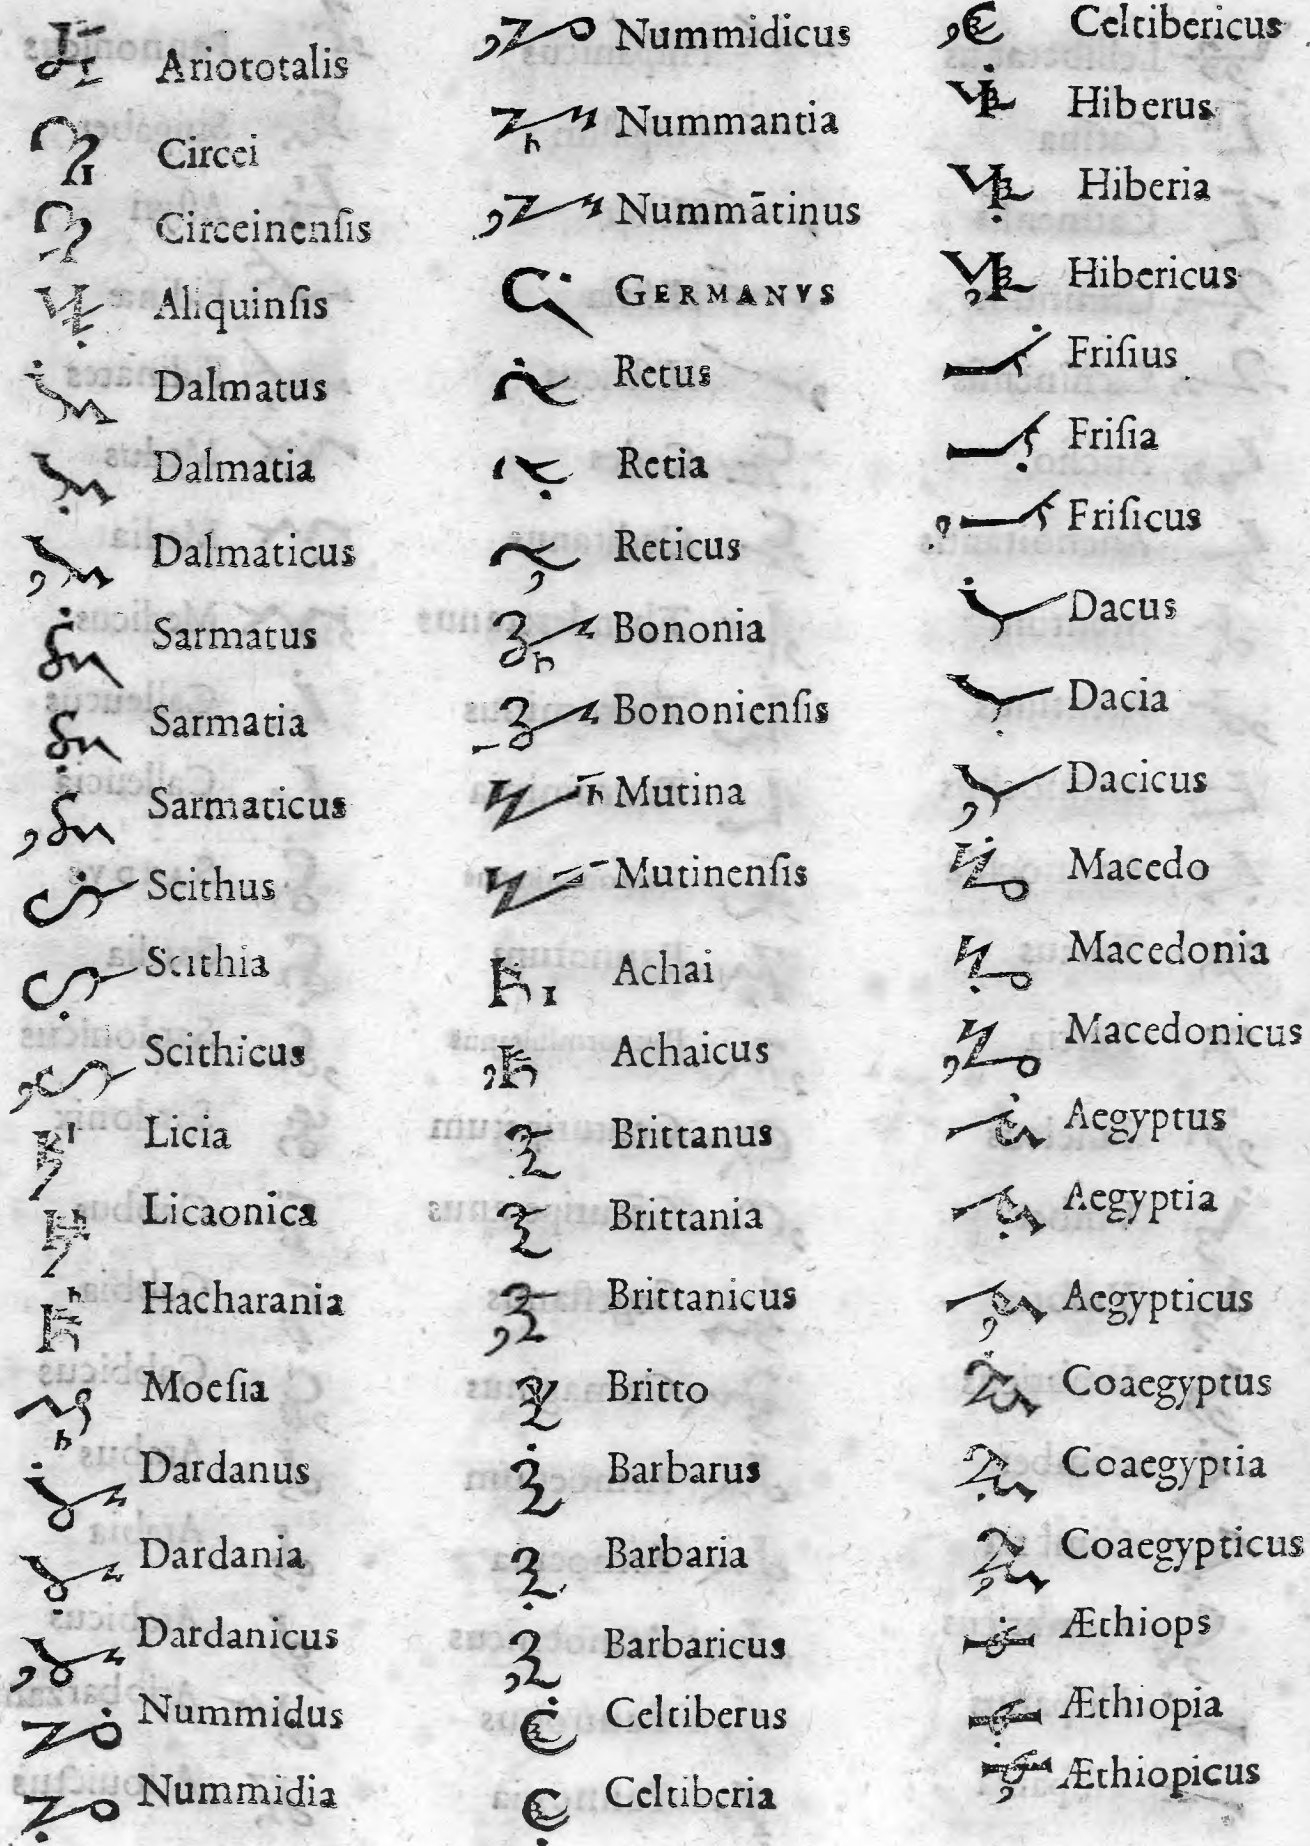 Ariototalis
Circei
Circeinenſis
Aliquinſis
Dalmatus
Dalmatia
Dalmaticus
Sarmatus
Sarmatia
Sarmaticus
Scithus
Scithia
Scithicus
Licia
Licaonica
Hacharania
Moeſia
Dardanus
Dardania
Dardanicus
Nummidus
Nummidia
Nummidicus
Nummantia
Nummātinus
GERMANVS
Retus
Retia
Reticus
Bononia
Bononienſis
Mutina
Mutinenſis
Achai
Achaicus
Brittanus
Brittania
Brittanicus
Britto
Barbarus
Barbaria
Barbaricus
Celtiberus
Celtiberia
Celtibericus
Hiberus
Hiberia
Hibericus
Friſius
Friſia
Friſicus
Dacus
Dacia
Dacicus
Macedo
Macedonia
Macedonicus
Aegyptus
Aegyptia
Aegypticus
Coaegyptus
Coaegyptia
Coaegypticus
Æthiops
Æthiopia
Æthiopicus